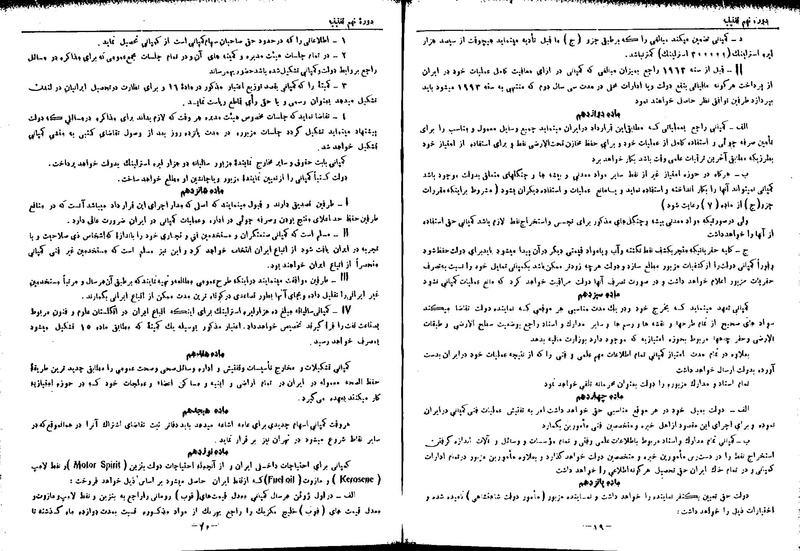 دورهٔ نهم تقنینیه
د - کمپانی تضمین میکند مبالغی را که برطبق جزو ( ج ) ما قبل تأدیه مینماید هیچوقت از سیصد هزار
لیره استرلینک (۳۰۰۰۰۰ استرلینک) کمتر نباشد.
II - قبل از سنه ۱۹۶۳ راجع بمیزان مبالغی که کمپانی در ازای معافیت کامل عملیات خود در ایران
از پرداخت هرگونه مالیاتی بنفع دولت و یا ادارات محلی در مدت سی سال دوم که منتهی به سنه ۱۹۹۳ میشود باید
بپردازد طرفین توافق نظر حاصل خواهند نمود
ماده دوازدهم
الف - کمپانی راجع بعملیاتی که مطابق این قرارداد در ایران مینماید جمیع وسایل معمول و مناسب را برای
تأمین صرفه جوئی و استفاده کامل از عملیات خود و برای حفظ مخازن تحت‌الارضی نفط و برای استفاده از امتیاز خود
بطرزیکه مطابق آخرین ترقیات علمی وقت باشد بکار خواهد برد
ب - هرگاه در حوزه امتیاز غیر از نفط سایر مواد معدنی و بیشه ها و جنگلهای متعلق بدولت موجود باشد
کمپانی نمیتواند آنها را بکار انداخته و استفاده نماید و یا مانع عملیات و استفاده دیگران بشود ( مشروط براینکه مقررات
جزو(ج) از ماده (۷) رعایت شود )
ولی در صورتیکه مواد معدنی بیشه و جنگل‌های مذکور برای تجسس و استخراج نفط لازم باشد کمپانی حق استفاده
از آنها را خواهد داشت
ج - کلیه حفریاتیکه منجر بکشف نفط نگشته و آب و یا مواد قیمتی دیگر در آن پیدا میشود باید برای دولت حفظ شود
و فوراً کمپانی دولت را از کشفیات مزبور مطلع سازد و دولت هرچه زودتر ممکن باشد بکمپانی تمایل خود را نسبت به تصرف
حفریات مزبور اعلام خواهد داشت و در صورت تصرف آنها دولت مراقبت خواهد کرد که مانع عملیات کمپانی نشود
ماده سیزدهم
کمپانی تعهد مینماید که بخرج خود و در یک مدت مناسبی هر موقعی که نماینده دولت تقاضا میکند
سواد های صحیح از تمام طرحها و نقشه ها و رسم ها و سایر مدارک و اسناد راجع بوضعیت سطح الارضی و طبقات
الارضی و حفر چاهها مربوط بحوزه امتیازیه که موجود دارد بوزارت مالیه بدهد
بعلاوه در تمام مدت امتیاز کمپانی تمام اطلاعات مهم علمی و فنی را که از نتیجه عملیات خود در ایران بدست
آورده بدولت ارسال خواهد داشت
تمام اسناد و مدارک مزبوره را دولت بعنوان محرمانه تلقی خواهد نمود
ماده چهاردهم
الف - دولت بمیل خود در هر موقع مناسبی حق خواهد داشت امر به تفتیش عملیات فنی کمپانی در ایران
نموده و برای اجرای این مقصود از اهل خبره و متخصصین فنی مأمورین بگمارد
ب - کمپانی تمام مدارک و اسناد مربوط باطلاعات علمی و فنی و تمام مؤسسات و وسائل و آلات اندازه گرفتن
استخراج نفط را در دسترس مأمورین خبره و متخصصین دولت خواهد گذارد و بعلاوه مأمورین مزبور در تمام ادارات
کمپانی و در تمام خاک ایران حق تحصیل هرگونه اطلاعی را خواهند داشت
ماده پانزدهم
دولت حق تعیین یکنفر نماینده را خواهد داشت و نماینده مزبور ( مأمور دولت شاهنشاهی ) نامیده شده و
اختیارات ذیل را خواهد داشت :
- ۱۹ -
دورهٔ نهم تقنینیه
۱ - اطلاعاتی را که در حدود حق صاحبان سهام کمپانی است از کمپانی تحصیل نماید .
۲ - در تمام جلسات هیئت مدیره و کمیته های آن و در تمام جلسات مجمع عمومی که برای مذاکره در مسائل
راجع بروابط دولت و کمپانی تشکیل شده باشد حضور بهمرساند
۳ - کمیتهٔ را که کمپانی بقصد توزیع اعتبار مذکور در مادهٔ ۱۶ و برای نظارت در تحصیل ایرانیان در لندن
تشکیل میدهد بعنوان رسمی و با حق رأی قاطع ریاست نمایـد .
٤ - تقاضا نماید که جلسات مخصوص هیئت مدیره هر وقت که لازم بداند برای مذاکره در مسائلی که دولت
پیشنهاد مینماید تشکیل گردد جلسات مزبوره در مدت پانزده روز بعد از وصول تقاضای کتبی به منشی کمپانی
تشکیل خواهد شد .
کمپانی بابت حقوق و سایر مخارج نمایندهٔ مزبور سالیانه دو هزار لیره استرلینک بدولت خواهد پرداخت .
دولت کـتباً کمپانی را از تعیین نمایندهٔ مزبور و یا جانشین او مطلع خواهد ساخت .
ماده شانزدهم
I - طرفین تصدیق دارند و قبول مینمایند که اصلی که مدار اجرای این قرارداد میباشد آنست که در منافع
طرفین حفظ حد اعلای منتج بودن و صرفه جوئی در اداره و عملیات کمپانی در ایران ضرورت عالی دارد .
II - مسلم است که کمپانی صنعتگران و مستخدمین فنی و تجاری خود را باندازهٔ که اشخاص ذی صلاحیت و با
تجربه در ایران یافت شود از اتباع ایران انتخاب خواهد کرد و این نیز مسلم است که مستخدمین غیر فنی کمپانی
منحصراً از اتباع ایران خواهند بود .
III - طرفین موافقت مینمایند در اینکه طرح عمومی مطالعه و تهیه نمایند که بر طبق آن هر سال و مرتباً مستخدمین
غیر ایرانی را تقلیل داده و بجای آنها بطور تصاعدی در کوتاه ترین مدت ممکن از اتباع ایرانی بگمارند .
IV - کمپانی سالیانه مبلغ ده هزار لیره استرلینک برای اینکه اتباع ایران در انگلستان علوم و فنون مربوط
بصناعت نفت را فرا گیرند تخصیص خواهد داد. اعتبار مذکور بوسیله یک کمیتهٔ که مطابق ماده ۱۵ تشکیل میشود
بمصرف خواهد رسید .
ماده هفدهم
کمپانی تشکیلات و مخارج تأسیسات و تفتیش و اداره وسائل صحی و صحت عمومی را مطابق جدید ترین طریقهٔ
حفظ الصحه معموله در ایران در تمام اراضی و ابنیه و مساکن اعضاء و عملجات خود کـه در حوزه امتیازیه
کار میکنند بعهده میگیرد .
ماده هیجدهم
هر وقت کمپانی اسهام جدیدی برای عامه اشاعه میدهد باید دفاتر ثبت تقاضای اشتراک آنرا در همان موقع که در
سایر نقاط شروع میشود در تهران نیز بر قرار نماید .
ماده نوزدهم
کمپانی برای احتیاجات داخلی ایران و از آنجمله احتیاجات دولت بنزین ( Motor Spirit )و نفط لامپ
( Kerosene ) و مازوت (Fuel oil)که از نفط ایران حاصل میشود بر اساس ذیل خواهد فروخت :
الف - در اول ژوئن هر سال کمپانی معدل قیمت‌های (فوب) رومانی را راجع به بنزین و نفط لامپ و مازوت و
معدل قیمت های (فوب) خلیج مکزیک را راجع بهر یک از مواد مذکوره نسبت بمدت دوازده ماه گذشته تا
- ۲۰ -